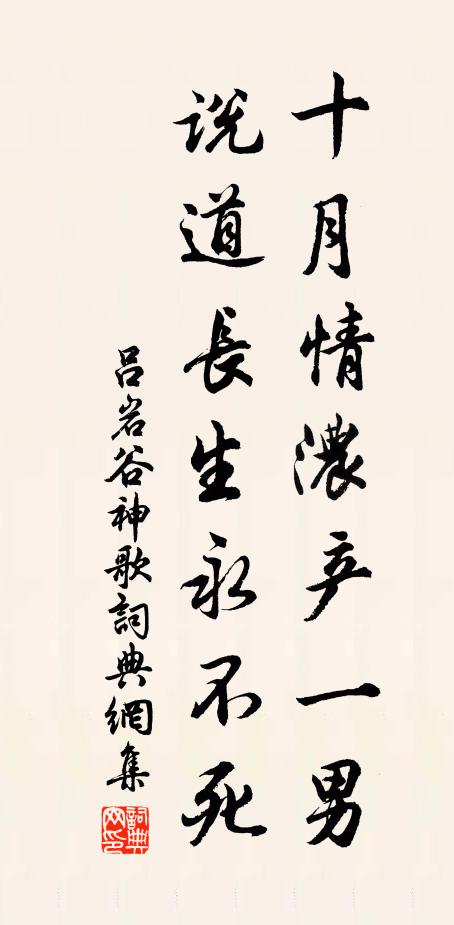 十月情濃产一男
説道長生永不死
吕岩谷神歌詞典網集
詞典
网印